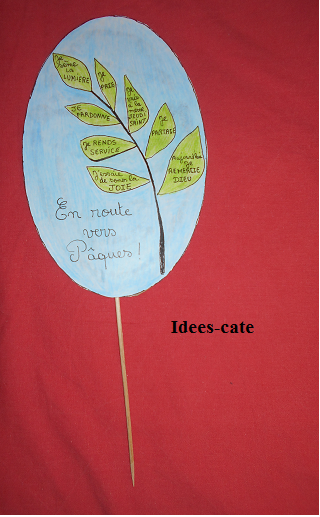 Je
sème
LA
LUMIÈRE
Je
PRIE
Je
vais
à la
messe
JEUDI
SAINT
JE
PARDONNE
Je
PARTAGE
Je RENDS
SERVICE
Aujourd'hui
Je
REMERCIE
DIEU
J'essaie
de semer la
JOIE
En route
vers
Pâques!
Idees-cate